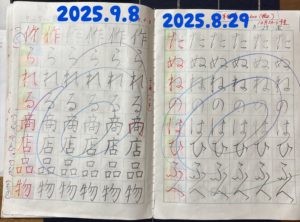 2025.9.8
2025.8.29
たぬねのはひふへ
たぬねのはひふへ
たぬねのはひふへ
たぬねのはひふへ
たぬねのはひふへ
たぬねのはひふへ
作られる商店品物
作られる商店品物
作られる商店品物
られる商店品物
作られる商店品物
作られる商店品物